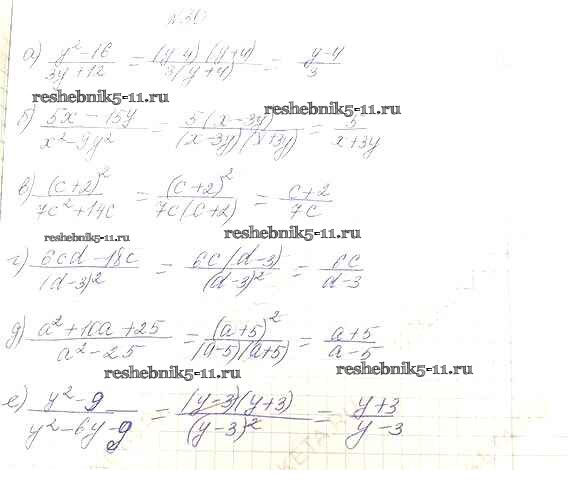 №30
а) y²-16 / 3y+12 = (y-4)(y+4) / 3(y+4) = y-4 / 3
reshebnik5-11.ru
reshebnik5-11.ru
б) 5x-15y / x²-9y² = 5(x-3y) / (x-3y)(x+3y) = 5 / x+3y
в) (c+2)² / 7c²+14c = (c+2)² / 7c(c+2) = c+2 / 7c
reshebnik5-11.ru
reshebnik5-11.ru
г) 6cd-18c / (d-3)² = 6c(d-3) / (d-3)² = 6c / d-3
д) a²+10a+25 / a²-25 = (a+5)² / (a-5)(a+5) = a+5 / a-5
reshebnik5-11.ru
reshebnik5-11.ru
е) y²-9 / y²-6y-9 = (y-3)(y+3) / (y-3)² = y+3 / y-3